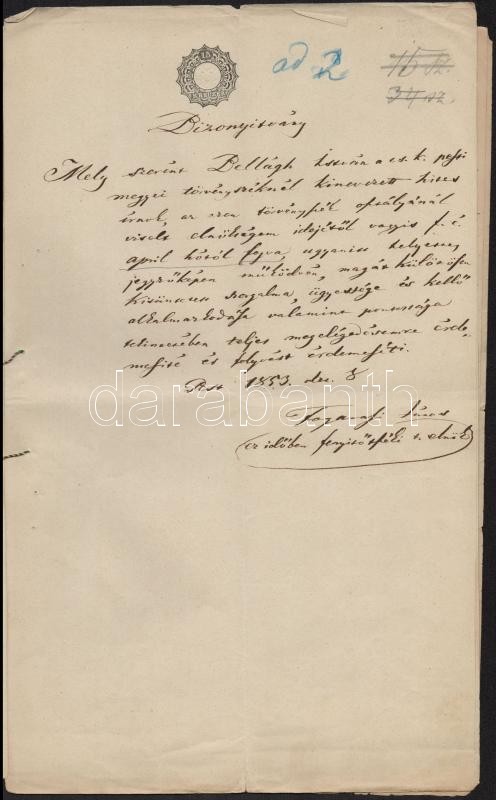 15
ad 2
15 kr.
34 sz.
Bizonyitvány
Mely szerint Bellágh István a cs. k. pesti
megyei törvényszéknél kinevezett hites
irnok, az ezen törvényszék osztályánál
viselt elnökségem idejétől vagyis f. é.
april hótól fogva, ugyanis helyettes
jegyzőképen működvén, magát különösen
szorgalma, ügyessége és kellő
alkalmazkodása valamint pontossága
tekintetében teljes megelégedésemre érde-
mesité és folyvást érdemesíti.
Pest 1853. dec. 8
darabanth
Fogarasi János
ez időben fenyitőtszéki t. elnök